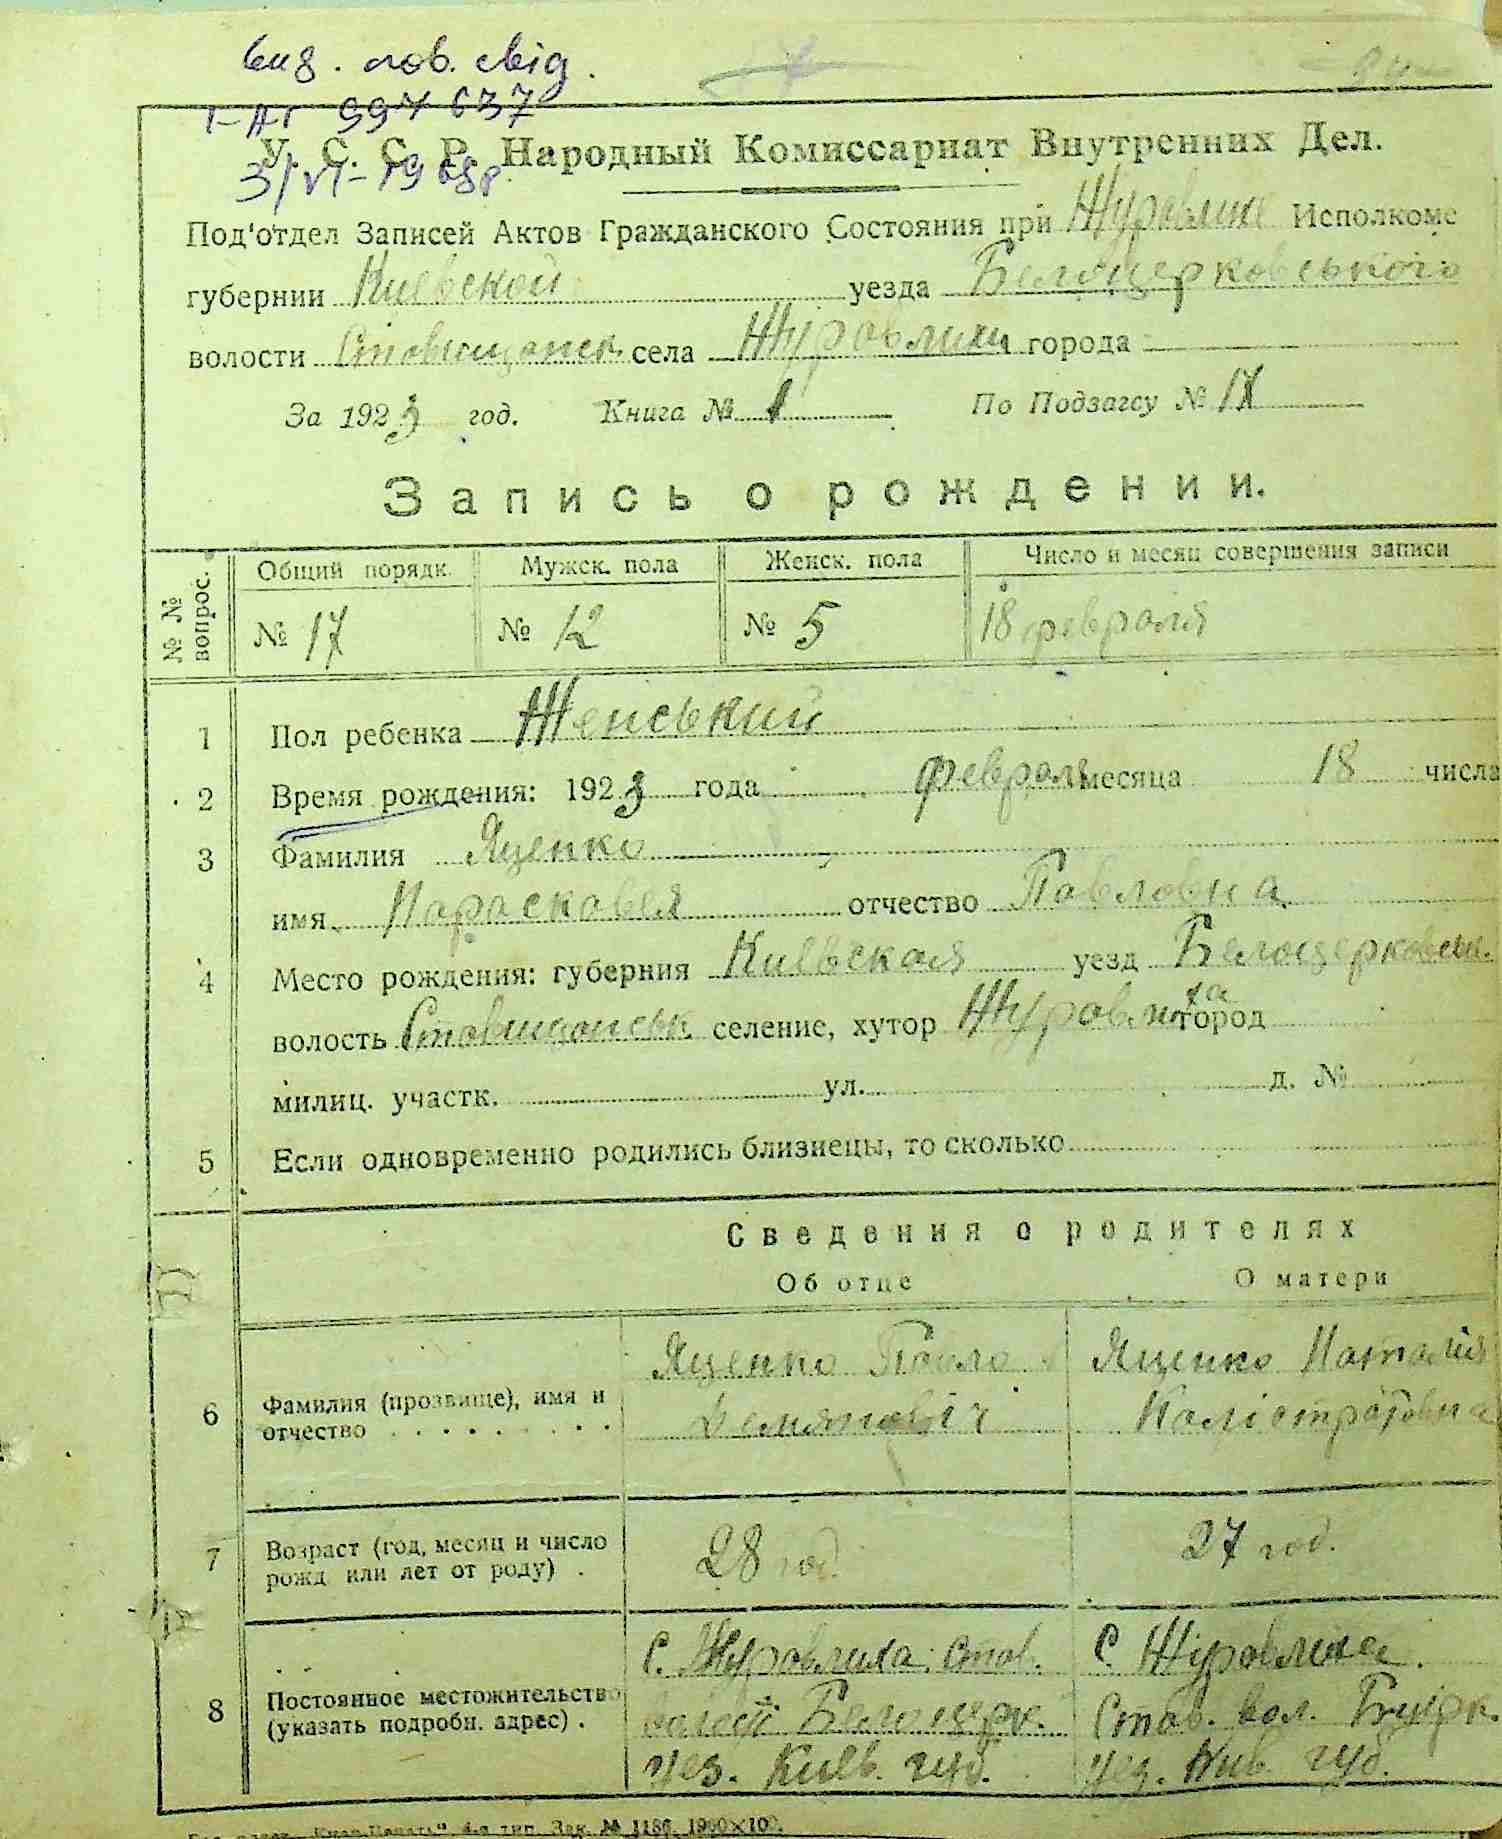 вид. пов. свід.
І-АГ 997637
У. С. С. Р. Народный Комиссариат Внутренних Дел.
3/VI-1968р.
Под'отдел Записей Актов Гражданского Состояния при Исполкоме
губернии Киевской уезда Белоцерковського
волости села Журовлихи города
За 1923 год. Книга № 1 По Подзагсу № 17
Запись о рождении.
№ № вопрос. Общий порядк. Мужск. пола Женск. пола Число и месяц совершения записи
№ 17 № 12 № 5 18 февраля
1 Пол ребенка Женський
2 Время рождения: 1923 года февраля месяца 18 числа
3 Фамилия Яценко
имя Парасковея отчество Павловна
4 Место рождения: губерния Киевская уезд Белоцерковськ.
волость Ставищанськ селение, хутор Журовлиха город
милиц. участк. ул. д. №
5 Если одновременно родились близнецы, то сколько
Сведения о родителях
Об отце О матери
Яценко Павло Яценко Наталія
6 Фамилия (прозвище), имя и отчество Демянович Калістратовна
7 Возраст (год, месяц и число рожд или лет от роду) . 28 год. 27 год.
С. Журовлиха Став. С. Журовлиха.
8 Постоянное местожительство (указать подробн. адрес) . Белоцерк. Став. вол. Бцерк.
уез. Киев. губ. уез. Киев. губ.
4-я тип. Зак. № 1186. 1900×100.